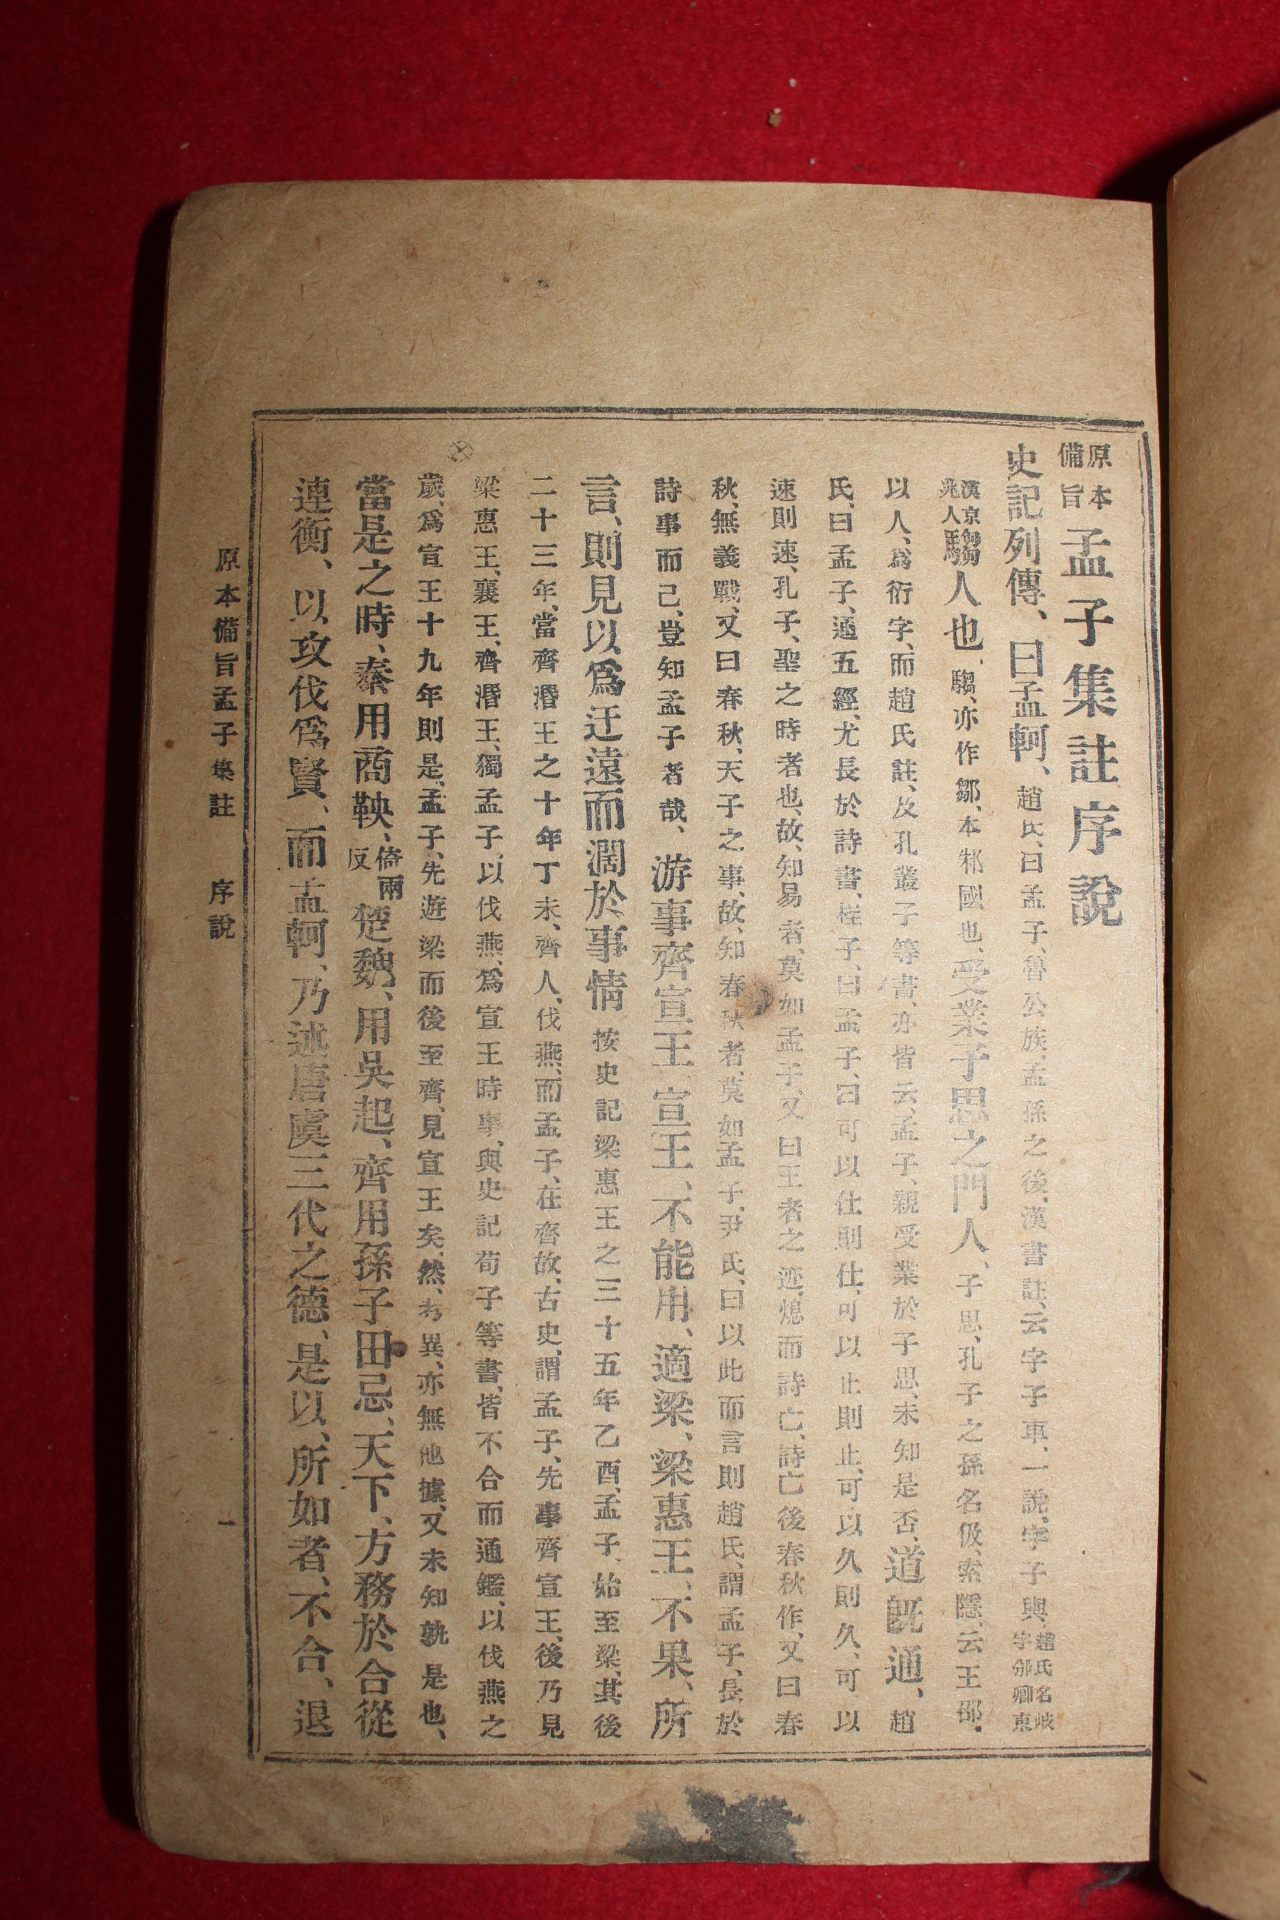 原本備旨孟子集註序說
史記列傳、曰孟軻、趙氏、曰孟子、魯公族、孟孫之後、漢書註、云字子車、一說、字子輿、趙氏名岐字邠卿東
漢京兆人騶人也、騶、亦作鄒、本邾國也、受業子思之門人、子思、孔子之孫名伋、索隱、云王邵、
以人、爲衍字、而趙氏註、及孔叢子等書、亦皆云、孟子、親受業於子思、未知是否、道旣通、趙
氏、曰孟子、通五經、尤長於詩書、程子、曰孟子、曰可以仕則仕、可以止則止、可以久則久、可以
速則速、孔子、聖之時者也、故、知易者、莫如孟子、又曰王者之迹、熄而詩亡、詩亡後春秋作、又曰春
秋、無義戰、又曰春秋、天子之事、故、知春秋者、莫如孟子、尹氏、曰以此而言則趙氏、謂孟子、長於
詩書而已、豈知孟子者哉、游事齊宣王、宣王、不能用、適梁、梁惠王、不果、所
言、則見以爲迂遠而濶於事情、按史記梁惠王之三十五年乙酉、孟子、始至梁、其後
二十三年、當齊湣王之十年丁未、齊人、伐燕、而孟子、在齊故、古史、謂孟子、先事齊宣王、後乃見
梁惠王、襄王、齊湣王、獨孟子、以伐燕、爲宣王時事、與史記荀子等書、皆不合而通鑑、以伐燕之
歲、爲宣王十九年則是、孟子、先遊梁而後至齊、見宣王矣、然、考異、亦無他據、又未知孰是也、
當是之時、秦用商鞅、倚兩反楚魏、用吳起、齊用孫子田忌、天下、方務於合從
連衡、以攻伐爲賢、而孟軻、乃述唐虞三代之德、是以、所如者、不合、退
原本備旨孟子集註 序說 一